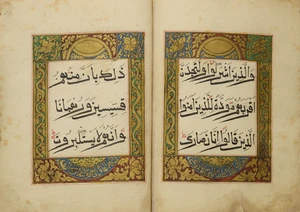 والذين اشركوا ولتجدن
اقربهم مودة للذين امنوا
الذين قالوا انا نصارى
ذلك بان منهم
قسيسين ورهبانا
وانهم لا يستكبرون